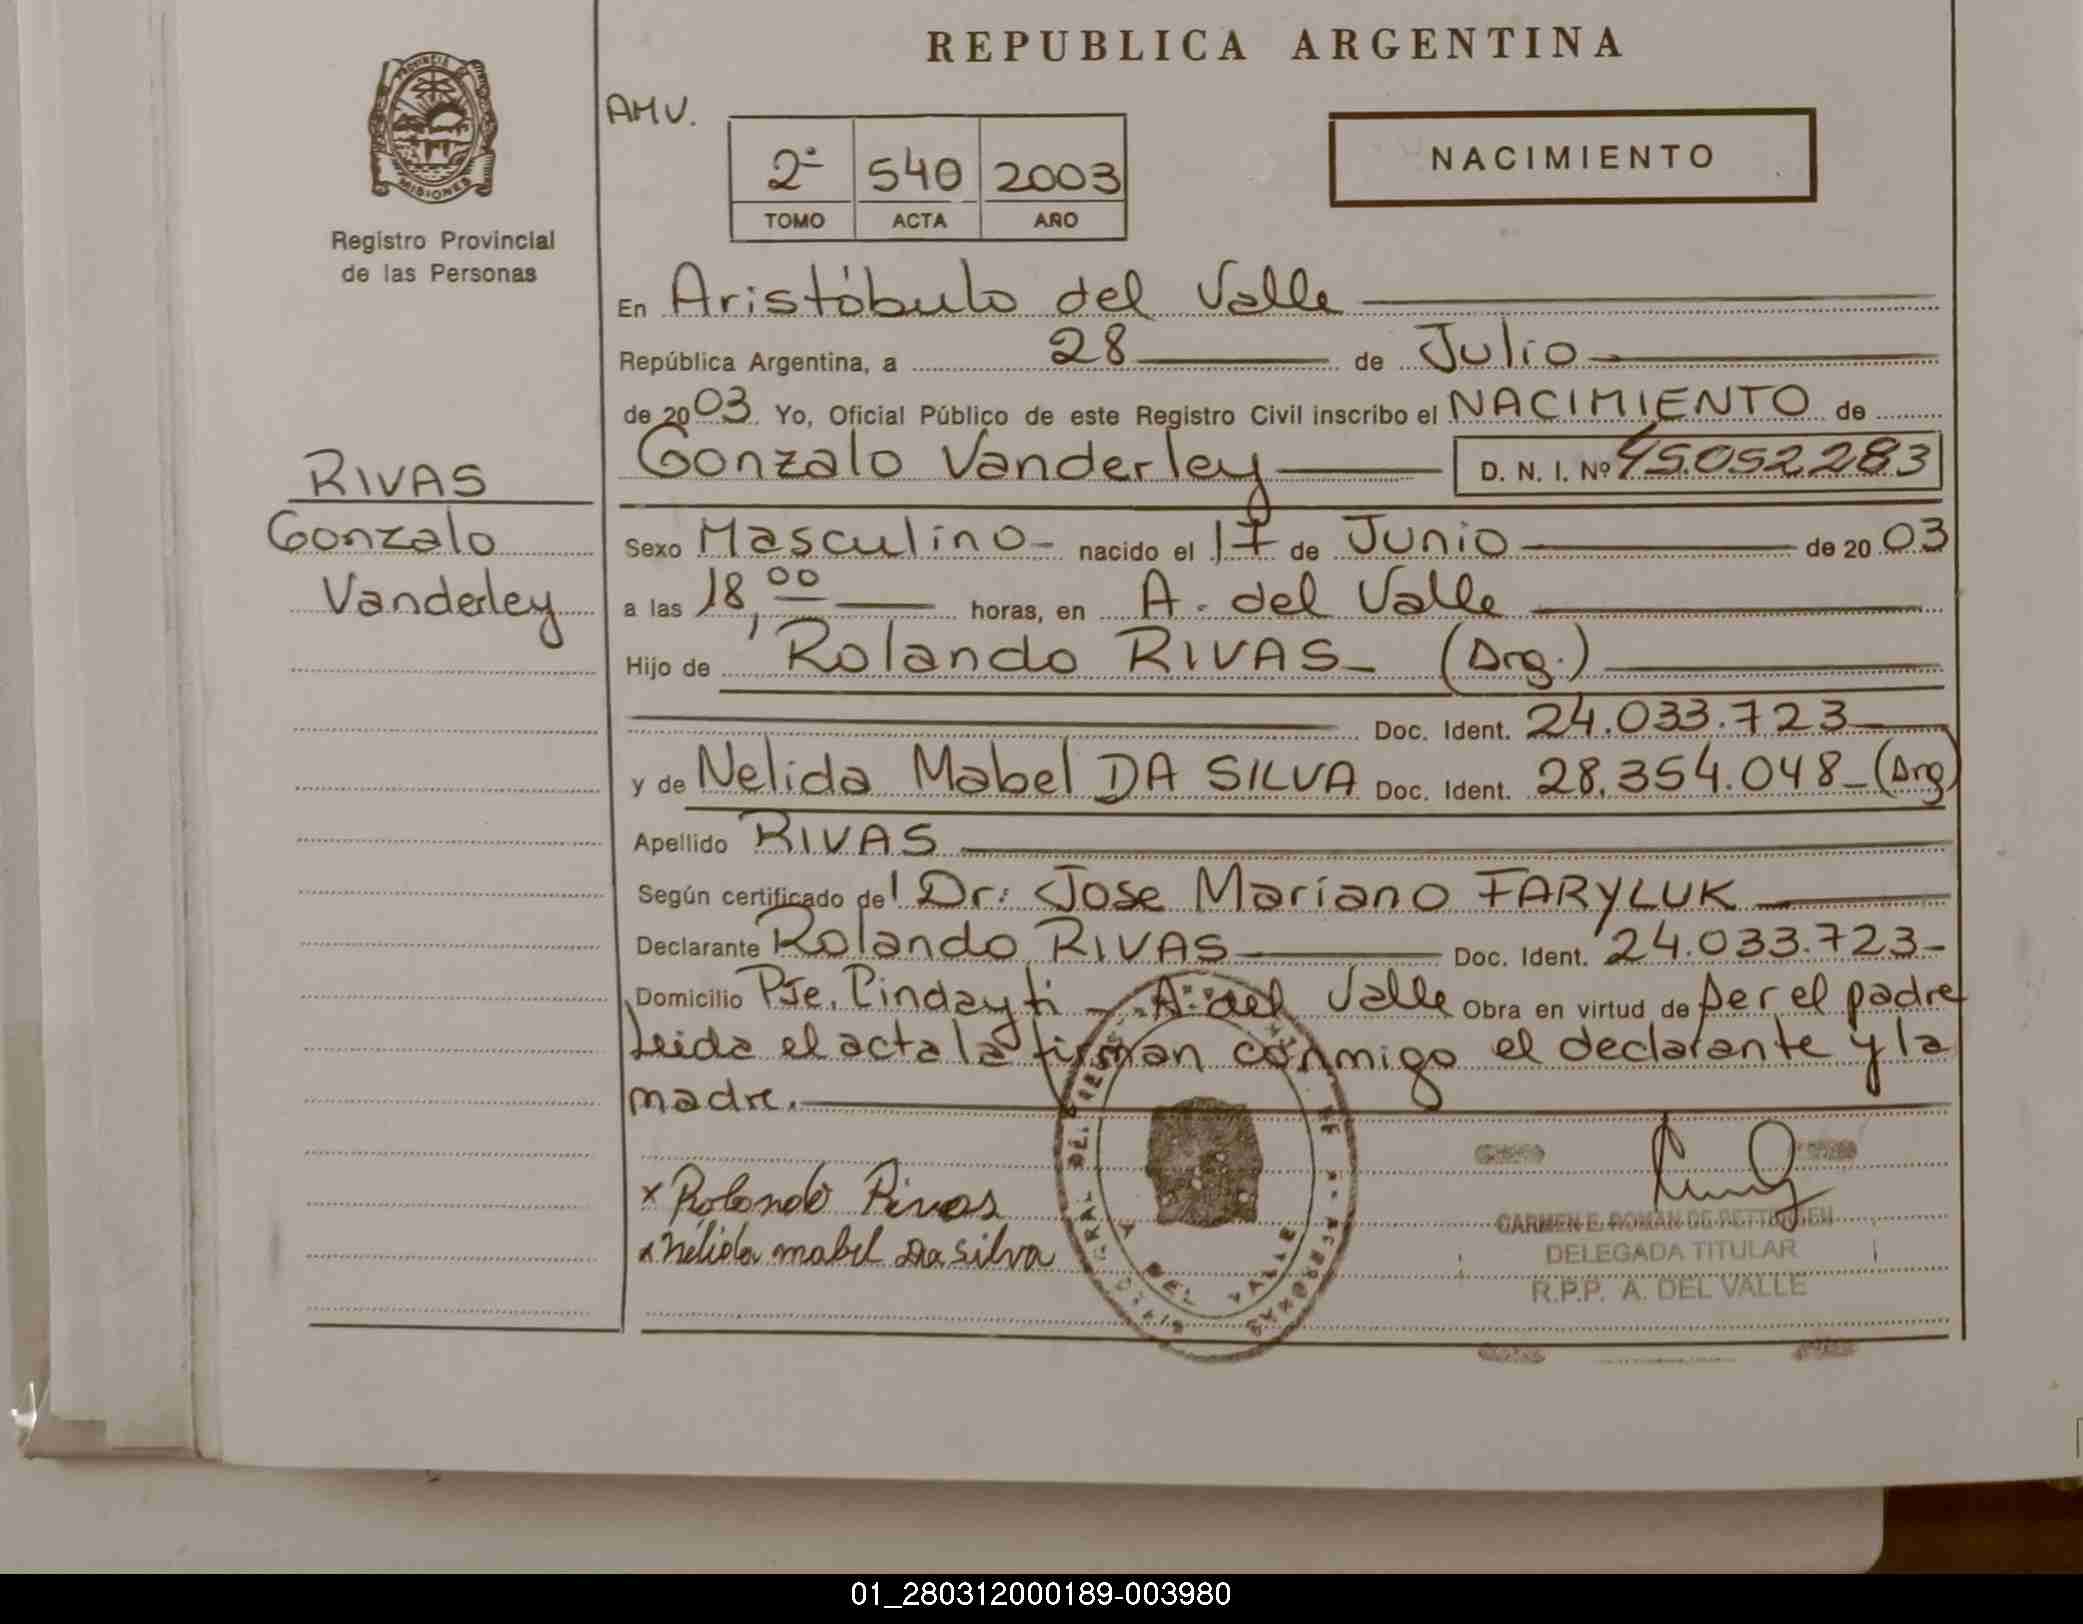 REPUBLICA ARGENTINA
PROVINCIA DE
MISIONES
Registro Provincial
de las Personas
AMV.
2ª 540 2003
TOMO ACTA AÑO
NACIMIENTO
En Aristóbulo del Valle
República Argentina, a 28 de Julio
de 2003. Yo, Oficial Público de este Registro Civil inscribo el NACIMIENTO de
Gonzalo Vanderley D. N. I. Nº 45.052.283
RIVAS
Gonzalo
Vanderley
Sexo Masculino nacido el 17 de Junio de 2003
a las 18,00 horas, en A. del Valle
Hijo de Rolando RIVAS (Arg.)
Doc. Ident. 24.033.723
y de Nelida Mabel DA SILVA Doc. Ident. 28.354.048 (Arg)
Apellido RIVAS
Según certificado del Dr: Jose Mariano FARYLUK
Declarante Rolando RIVAS Doc. Ident. 24.033.723
Domicilio Pje. Pindayti - A. del Valle Obra en virtud de ser el padre
Leida el acta la firman conmigo el declarante y la
madre.
x Rolando Rivas
x Nélida mabel Da silva
A DEL VALLE
CARMEN E. ROMAN DE
DELEGADA TITULAR
R.P.P. A. DEL VALLE
01_280312000189-003980